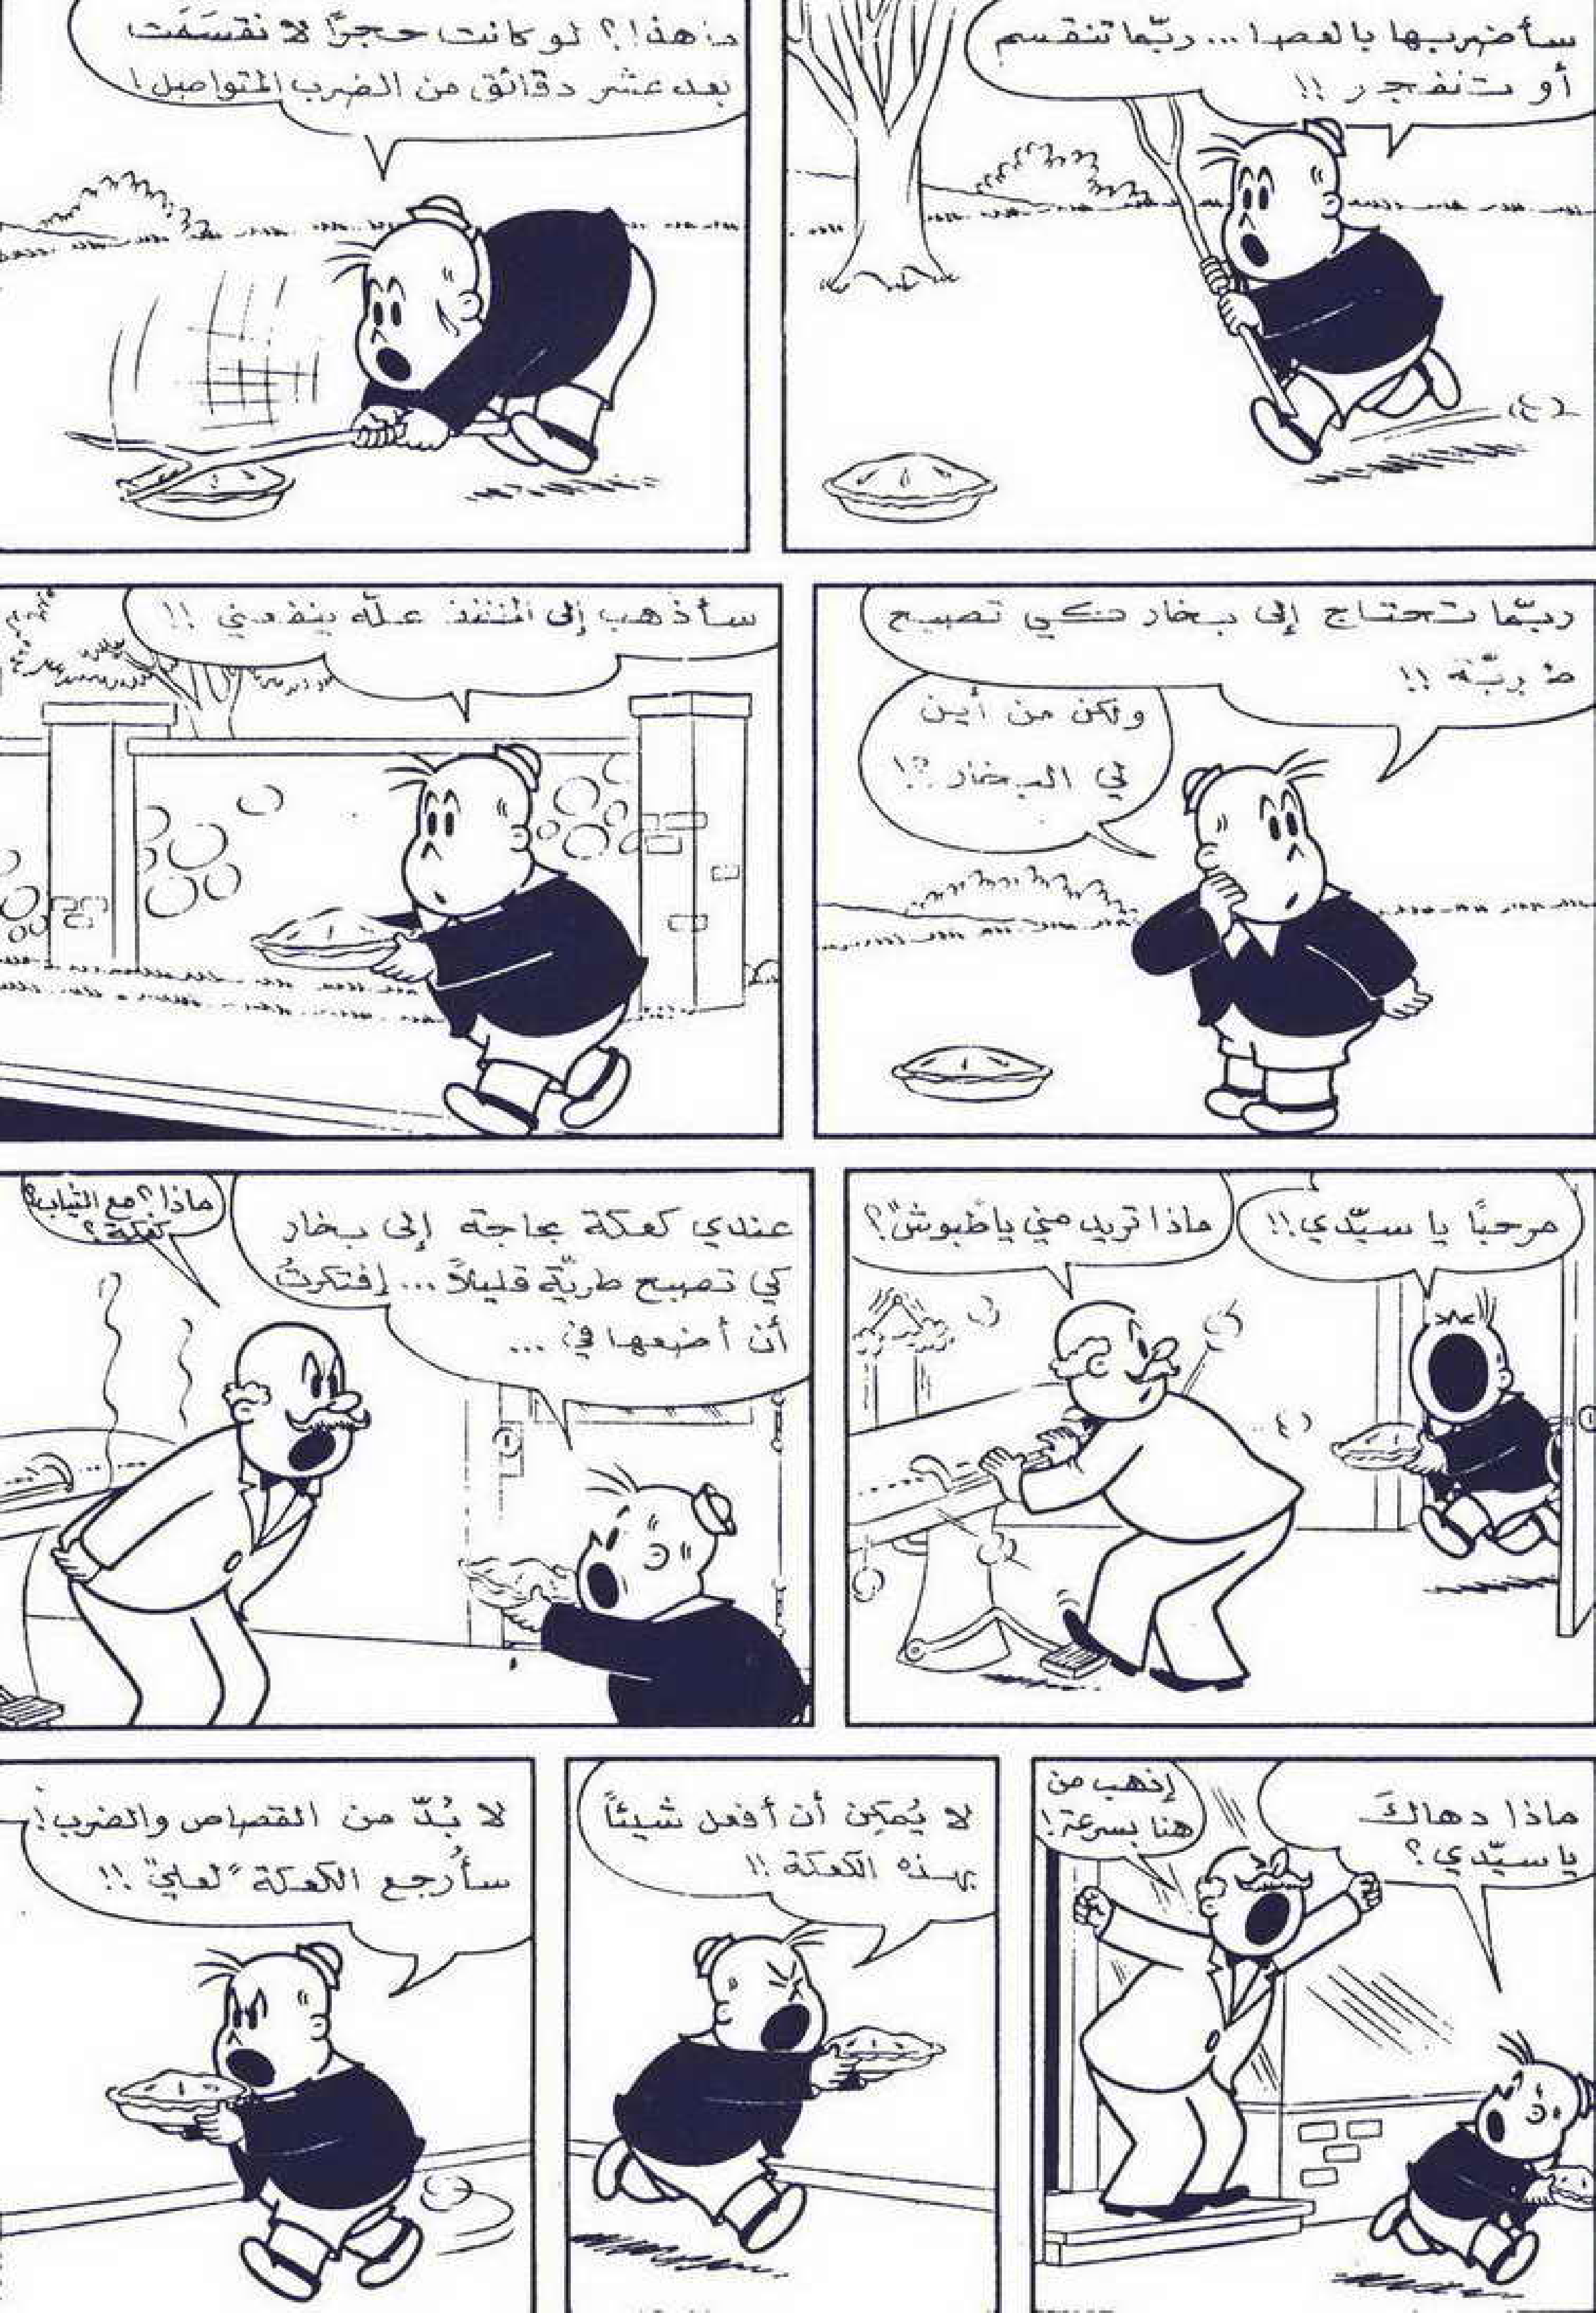 سأضربها بالعصا... ربّما تنقسم
أو تنفجر !!
ما هذا!؟ لو كانت حجرًا لانقسَمَت
بعد عشر دقائق من الضرب المتواصل!
ربّما تحتاج إلى بخار لكي تصبح
طريّة !!
ولكن من أين
لي البخار ؟!
سأذهب إلى علّه ينفعني !!
مرحبًا يا سيّدي !!
ماذا تريد مني يا طبّوش؟
عندي كعكة بحاجة إلى بخار
كي تصبح طريّة قليلاً... إفتكرتُ
أن أضعها في ...
ماذا؟ مع الثياب؟
كعكة؟
ماذا دهاكَ
يا سيّدي؟
إذهب من
هنا بسرعة!
لا يُمكِن أن أفعل شيئاً
بهذه الكعكة !!
لا بُدّ من القصاص والضرب!
سأُرجع الكعكة "لعلي" !!